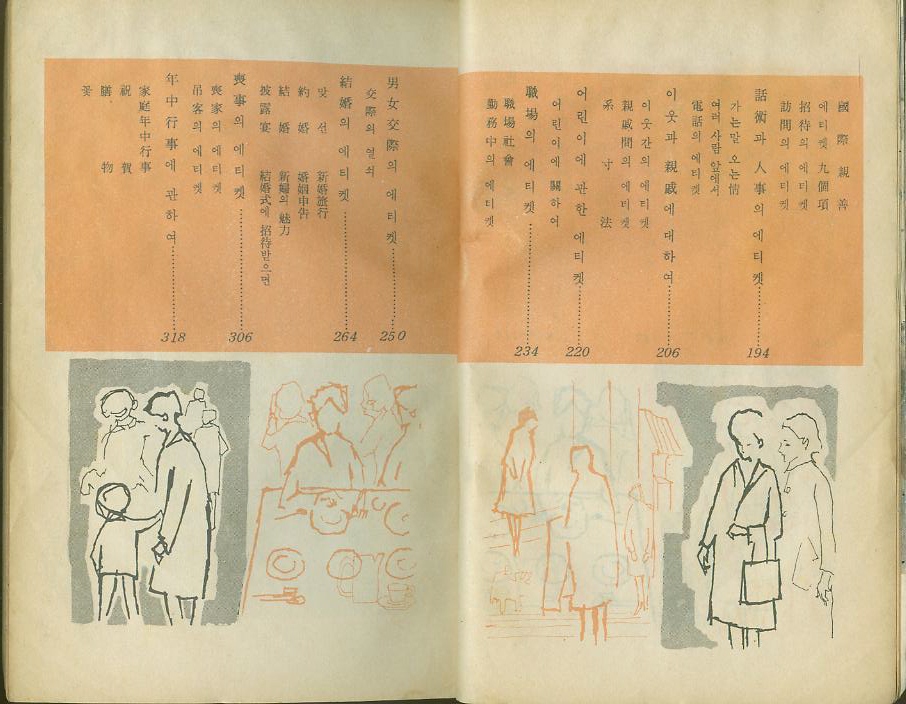 國際親善
에티켓 九個項
招待의 에티켓
訪問의 에티켓
話術과 人事의 에티켓 194
가는말 오는情
여러 사람 앞에서
電話의 에티켓
이웃과 親戚에 대하여 206
이웃간의 에티켓
親戚間의 에티켓
系寸法
어린이에 관한 에티켓 220
어린이에 關하여
職場의 에티켓 234
職場社會
勤務中의 에티켓
男女交際의 에티켓 250
交際의 열쇠
結婚의 에티켓 264
맞선 新婚旅行
約婚 婚姻申告
結婚 新婦의 魅力
披露宴 結婚式에 招待받으면
喪事의 에티켓 306
喪家의 에티켓
吊客의 에티켓
年中行事에 관하여 318
家庭年中行事
祝賀
膳物
꽃